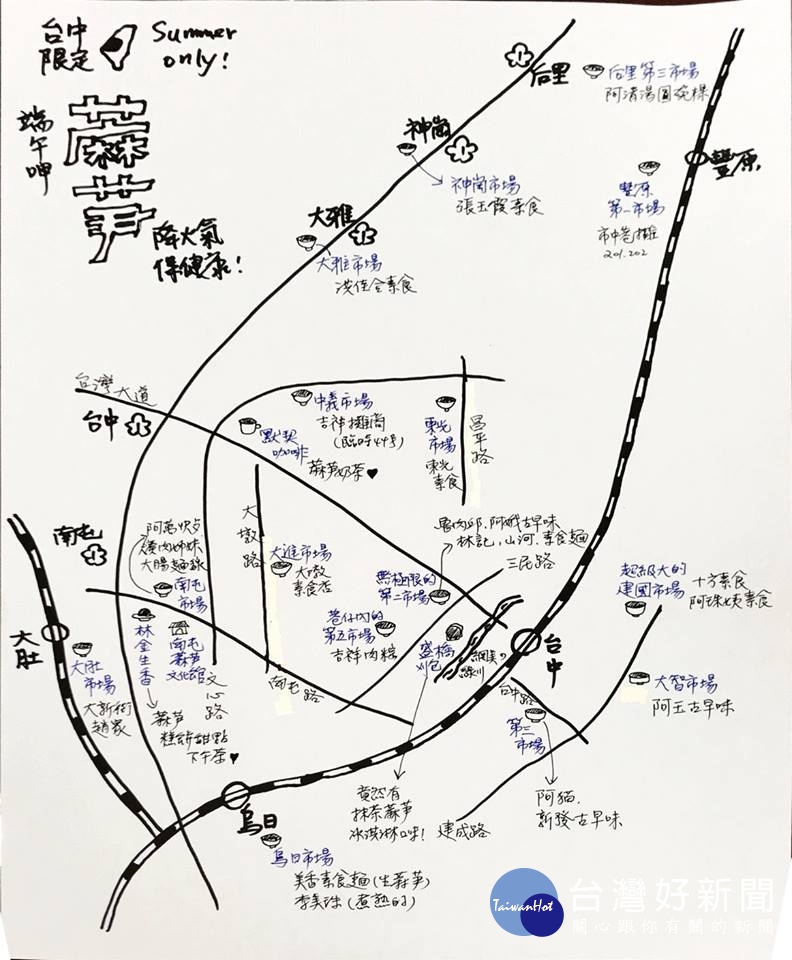 台中
限定
Summer
only!
端午呷
蔴芛
降火氣
保健康!
后里
后里第三市場
阿清湯圓碗粿
神岡
神岡市場
張玉霞素食
豐原
豐原
第一市場
市中巷攤
201.202
大雅
大雅市場
洪佳全素食
台灣大道
台中
中義市場
吉神攤商
(臨時44号)
默契
咖啡
蔴芛奶茶♥
東光
市場
東光
素食
昌平路
南屯
大腸麵線
南屯
市場
大墩路
大進市場
大墩
素食店
林記、山河、素食麵
三民路
第二市場
超級大的
建國市場
十方素食
阿珠姨素食
大肚
大肚
市場
大新街
趙家
林金生香
蔴芛
糕餅甜點
下午茶♥
南屯
蔴芛
文化館
文心路
南屯路
巷仔內的
第五市場
吉祥肉粽
盛橋
刈包
網美の
綠川
台中
台中路
第三
市場
大智市場
阿玉古早味
竟然有
抹茶蔴芛
冰淇淋口味!
建成路
阿貓.
新發古早味
烏日
烏日市場
美香素食麵(生蔴芛)
李美珠(煮熟的)
TaiwanHot
台灣好新聞
關心跟你有關的新聞